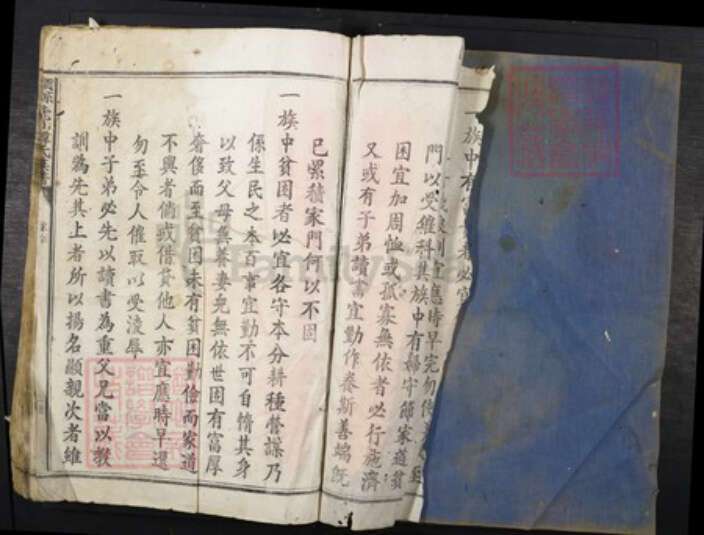 一族中有富
門以受維科其族中有婦守節家道貧
困宜加周恤或孤寡無依者必行施濟
又或有子弟讀書宜勤作泰斯善端既
已累積家門何以不固
一族中貧困者必宜各守本分耕種營謀乃
係生民之本百事宜勤不可自惰其身
以致父母無養妻兒無依世固有富厚
奢侈而至貧困未有貧困勤儉而家道
不興者倘或借貸他人亦宜應時早還
勿至令人催取以受凌辱
一族中子弟必先以讀書為重父兄當以教
訓為先其上者所以揚名顯親次者維